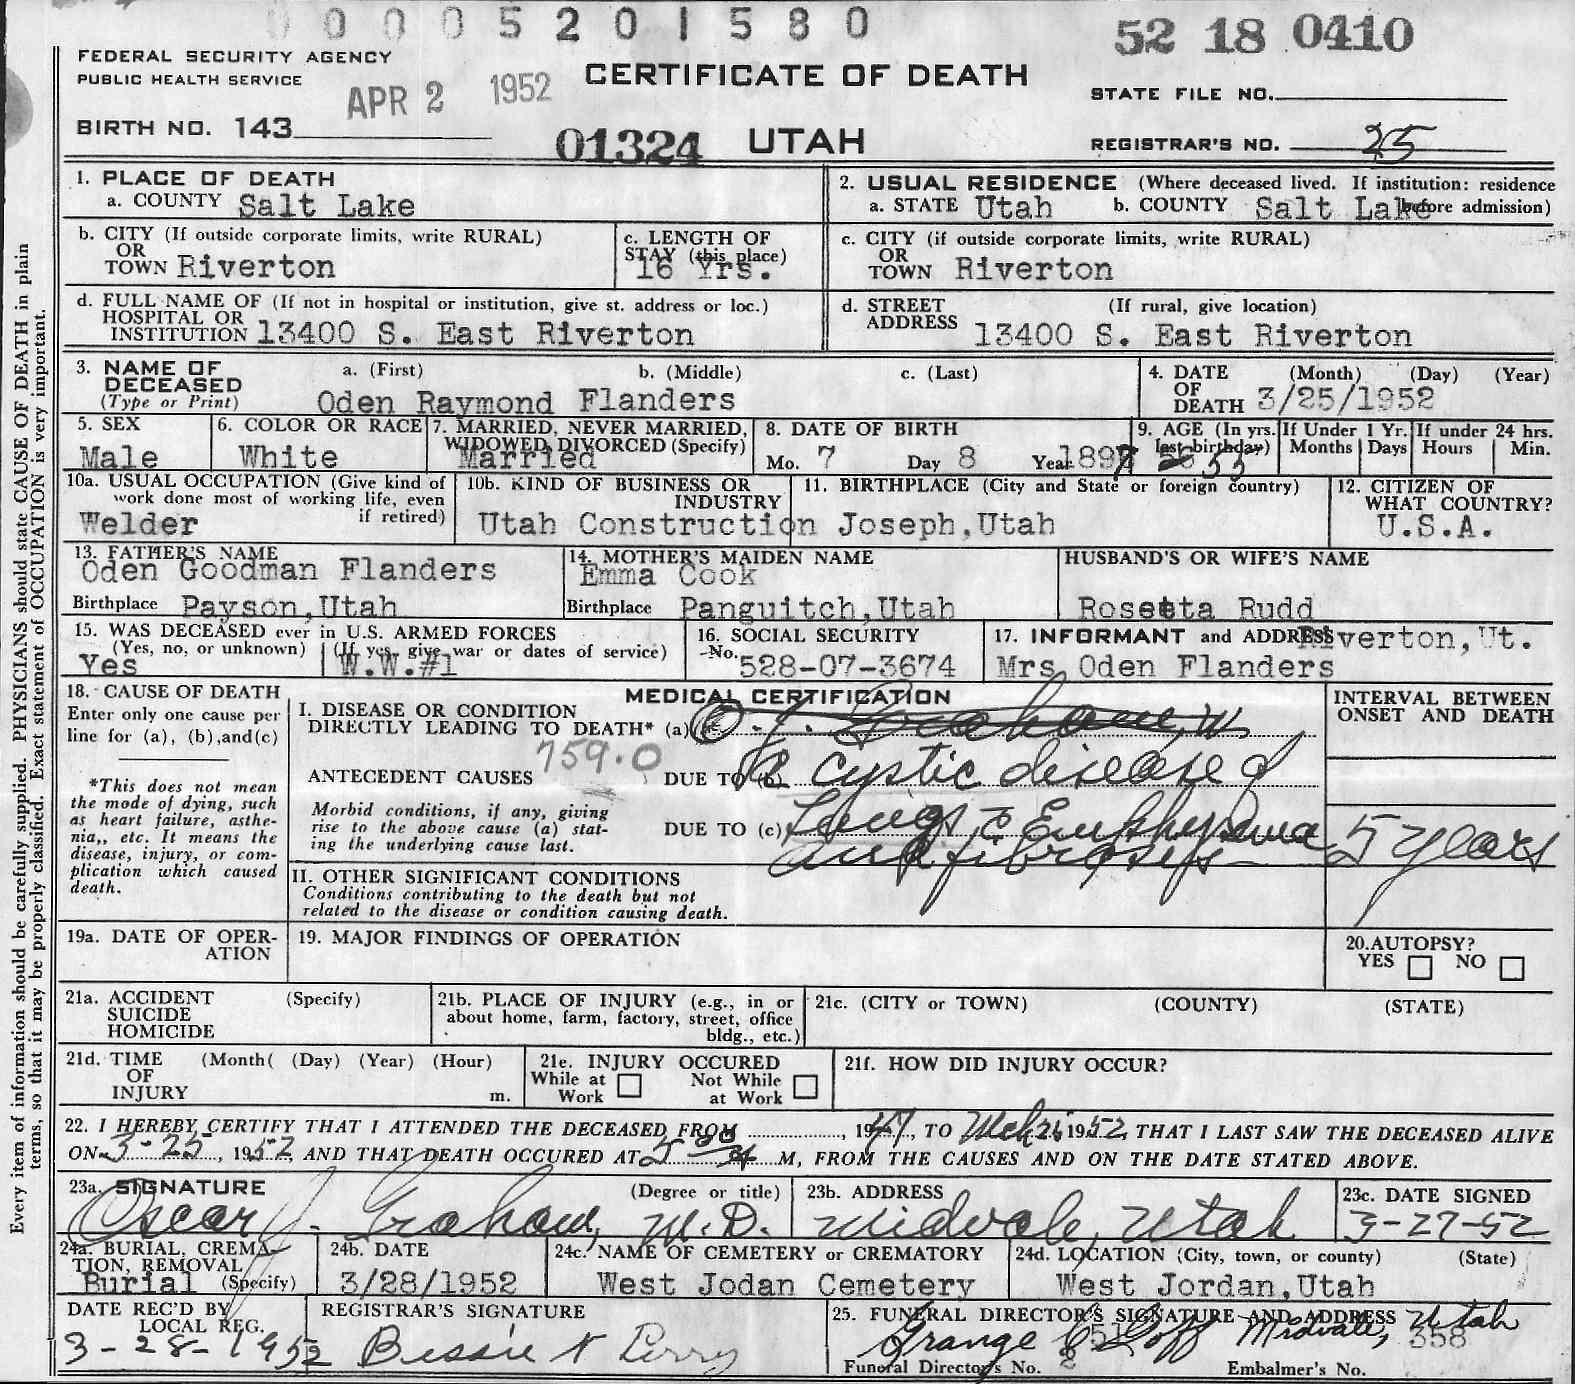 0 0 0 5 2 0 1 5 8 0
52 18 0410
FEDERAL SECURITY AGENCY
PUBLIC HEALTH SERVICE
APR 2 1952
CERTIFICATE OF DEATH
STATE FILE NO.
BIRTH NO. 143
01324 UTAH
REGISTRAR'S NO. 25
1. PLACE OF DEATH
a. COUNTY Salt Lake
2. USUAL RESIDENCE (Where deceased lived. If institution: residence before admission)
a. STATE Utah b. COUNTY Salt Lake
b. CITY (If outside corporate limits, write RURAL)
OR
TOWN Riverton
c. LENGTH OF
STAY (this place)
16 Yrs.
c. CITY (if outside corporate limits, write RURAL)
OR
TOWN Riverton
d. FULL NAME OF (If not in hospital or institution, give st. address or loc.)
HOSPITAL OR
INSTITUTION 13400 S. East Riverton
d. STREET (If rural, give location)
ADDRESS 13400 S. East Riverton
3. NAME OF a. (First) b. (Middle) c. (Last)
DECEASED
(Type or Print) Oden Raymond Flanders
4. DATE (Month) (Day) (Year)
OF
DEATH 3/25/1952
5. SEX
Male
6. COLOR OR RACE
White
7. MARRIED, NEVER MARRIED,
WIDOWED, DIVORCED (Specify)
Married
8. DATE OF BIRTH
Mo. 7 Day 8 Year 189
9. AGE (In yrs.
last birthday)
If Under 1 Yr.
Months Days
If under 24 hrs.
Hours Min.
10a. USUAL OCCUPATION (Give kind of
work done most of working life, even
if retired)
Welder
10b. KIND OF BUSINESS OR
INDUSTRY
Utah Construction
11. BIRTHPLACE (City and State or foreign country)
Joseph,Utah
12. CITIZEN OF
WHAT COUNTRY?
U.S.A.
13. FATHER'S NAME
Oden Goodman Flanders
Birthplace Payson,Utah
14. MOTHER'S MAIDEN NAME
Emma Cook
Birthplace Panguitch,Utah
HUSBAND'S OR WIFE'S NAME
Rosetta Rudd
15. WAS DECEASED ever in U.S. ARMED FORCES
(Yes, no, or unknown) (If yes, give war or dates of service)
Yes W.W.#1
16. SOCIAL SECURITY
No. 528-07-3674
17. INFORMANT and ADDRESS Riverton,Ut.
Mrs Oden Flanders
18. CAUSE OF DEATH
Enter only one cause per
line for (a), (b),and(c)
*This does not mean
the mode of dying, such
as heart failure, asthe-
nia,, etc. It means the
disease, injury, or com-
plication which caused
death.
MEDICAL CERTIFICATION
I. DISEASE OR CONDITION
DIRECTLY LEADING TO DEATH* (a)
759.0
ANTECEDENT CAUSES DUE TO (b) cystic disease of
Morbid conditions, if any, giving
rise to the above cause (a) stat-
ing the underlying cause last.
DUE TO (c) Lungs, c Emphysema
and fibrosis
INTERVAL BETWEEN
ONSET AND DEATH
5 years
II. OTHER SIGNIFICANT CONDITIONS
Conditions contributing to the death but not
related to the disease or condition causing death.
19a. DATE OF OPER-
ATION
19. MAJOR FINDINGS OF OPERATION
20.AUTOPSY?
YES NO
21a. ACCIDENT (Specify)
SUICIDE
HOMICIDE
21b. PLACE OF INJURY (e.g., in or
about home, farm, factory, street, office
bldg., etc.)
21c. (CITY or TOWN) (COUNTY) (STATE)
21d. TIME (Month( (Day) (Year) (Hour)
OF
INJURY m.
21e. INJURY OCCURED
While at Work Not While at Work
21f. HOW DID INJURY OCCUR?
22. I HEREBY CERTIFY THAT I ATTENDED THE DECEASED FROM , 1947, TO Mch 25 1952, THAT I LAST SAW THE DECEASED ALIVE
ON 3-25, 1952, AND THAT DEATH OCCURED AT 5 00 A M, FROM THE CAUSES AND ON THE DATE STATED ABOVE.
23a. SIGNATURE (Degree or title)
Oscar J. Graham, M.D.
23b. ADDRESS
Midvale, Utah
23c. DATE SIGNED
3-27-52
24a. BURIAL, CREMA-
TION, REMOVAL
Burial (Specify)
24b. DATE
3/28/1952
24c. NAME OF CEMETERY or CREMATORY
West Jodan Cemetery
24d. LOCATION (City, town, or county) (State)
West Jordan,Utah
DATE REC'D BY
LOCAL REG.
3-28-1952
REGISTRAR'S SIGNATURE
Bessie N Perry
25. FUNERAL DIRECTOR'S SIGNATURE AND ADDRESS
Goff Midvale, Utah
Funeral Director's No. Embalmer's No. 358
Every item of information should be carefully supplied. PHYSICIANS should state CAUSE OF DEATH in plain
terms, so that it may be properly classified. Exact statement of OCCUPATION is very important.